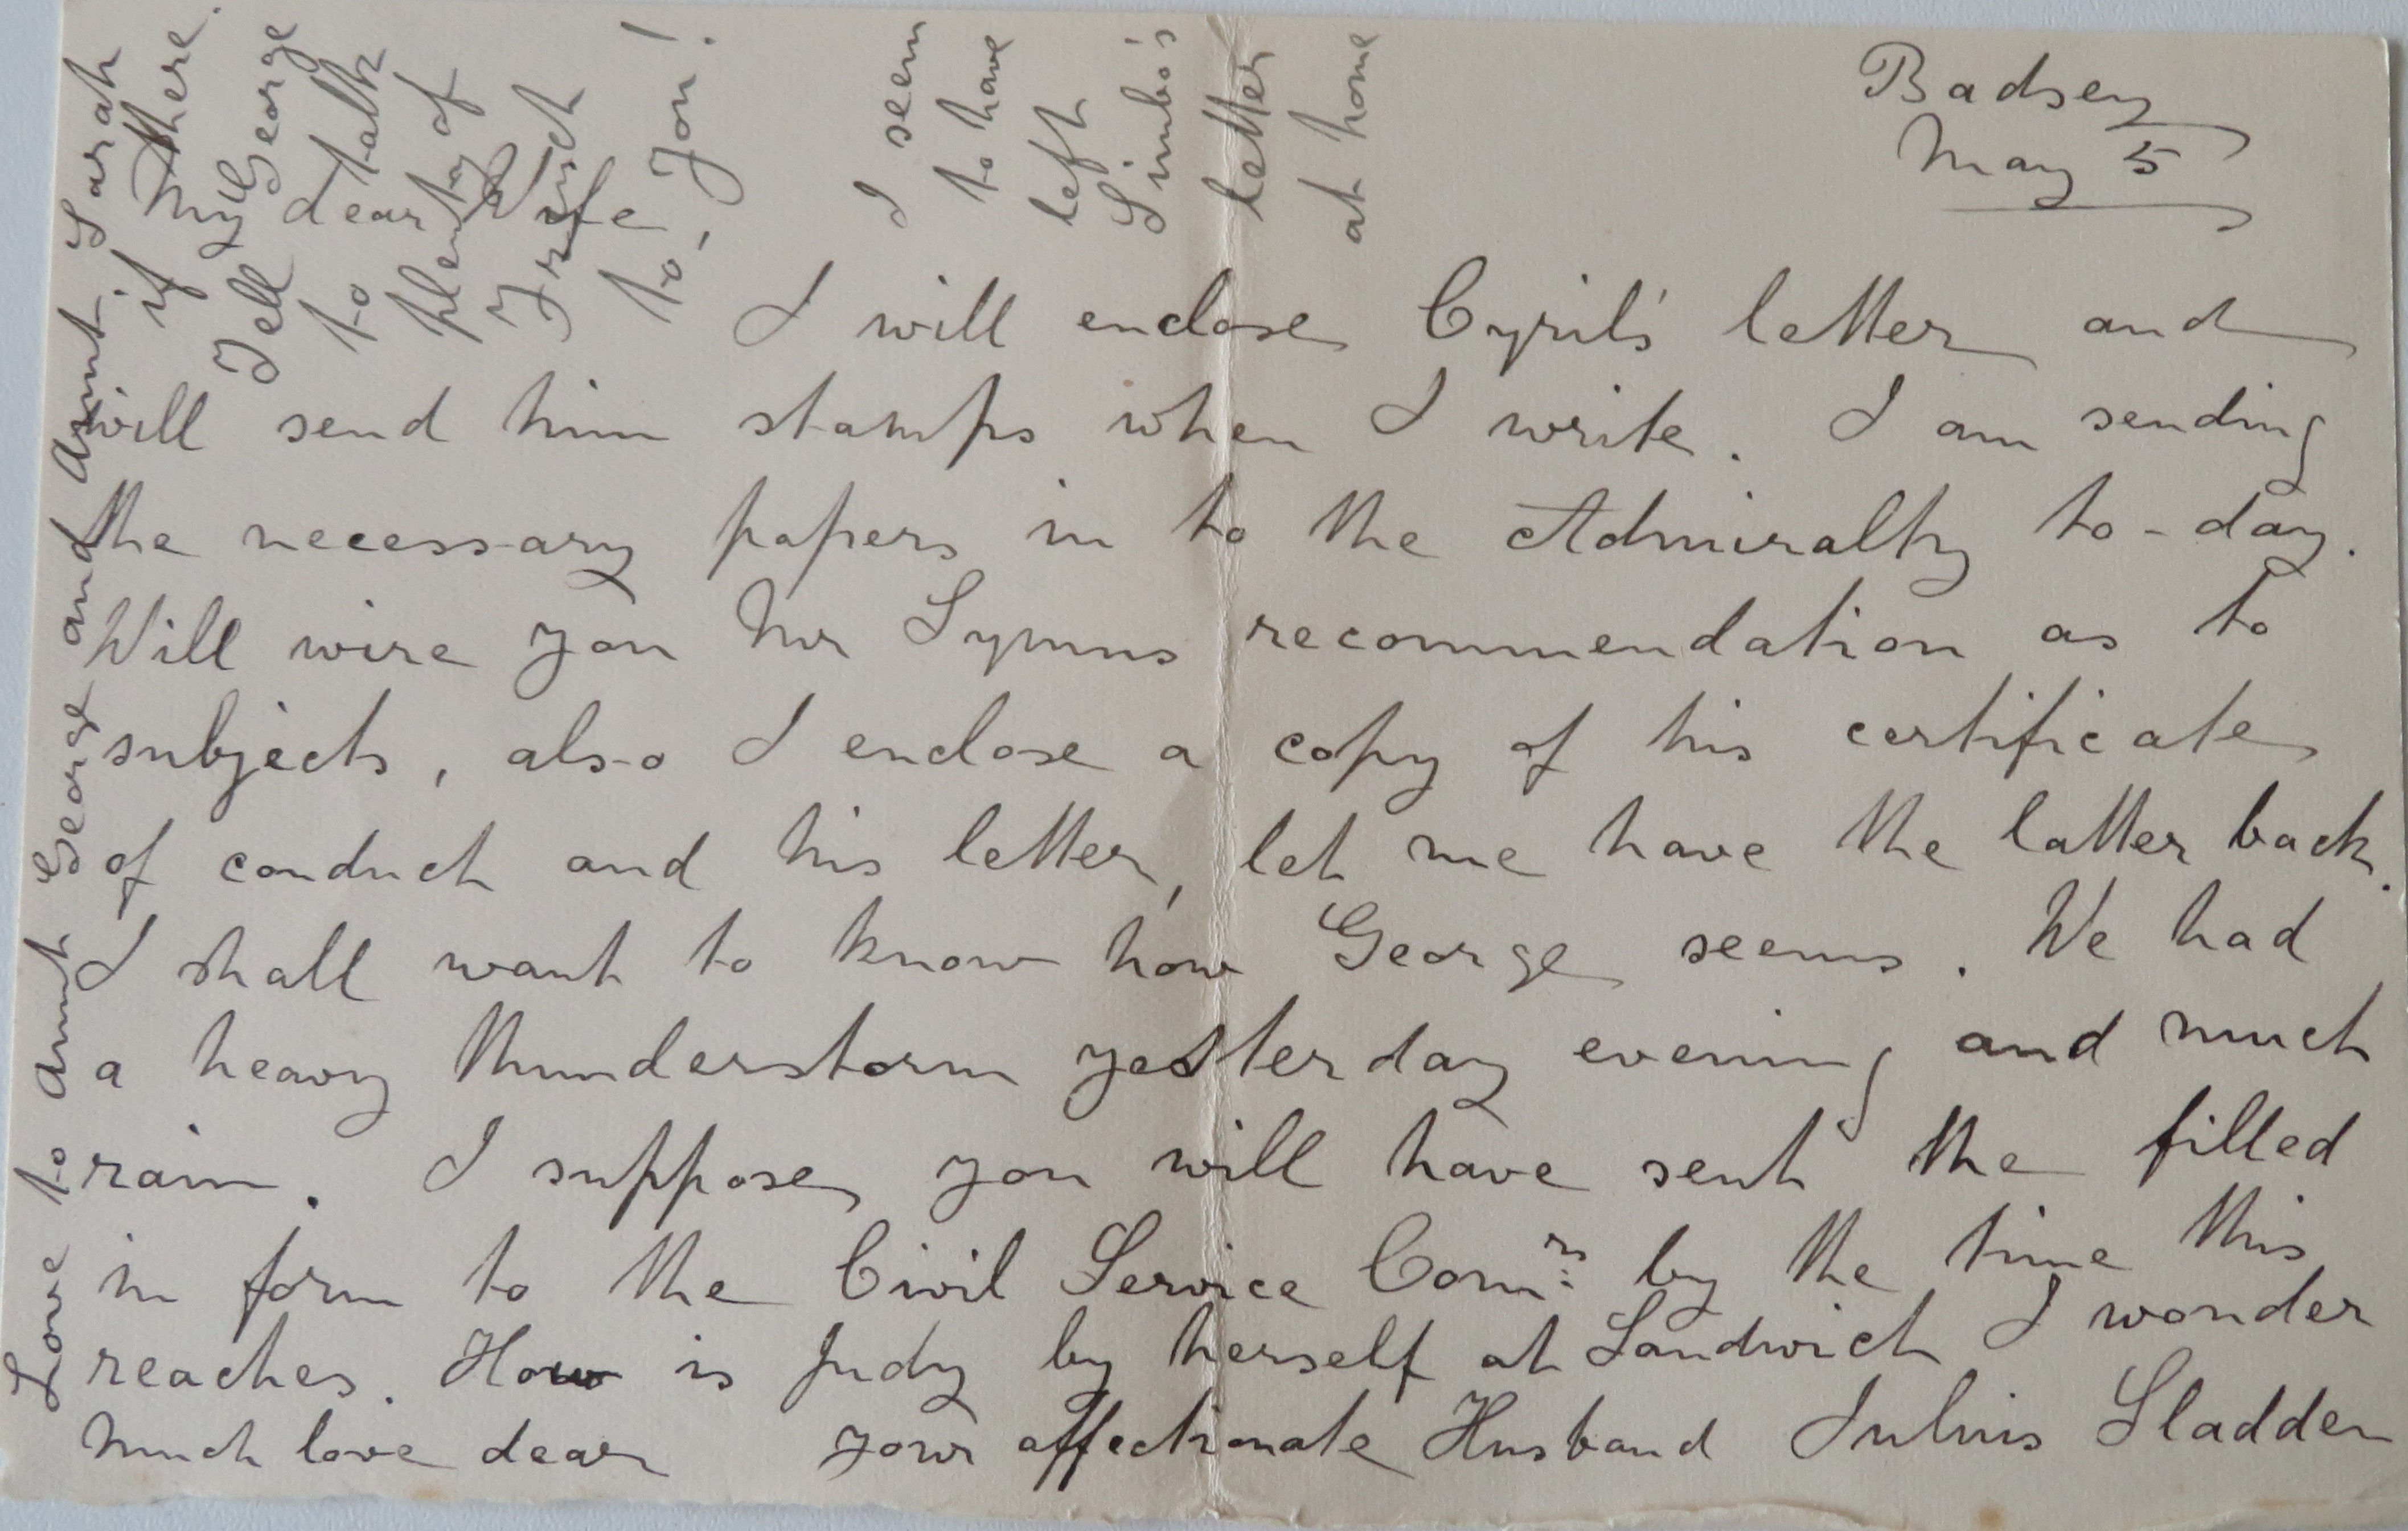 Badsey
May 5
My dear Wife
I will enclose Cyril's letter and
will send him stamps when I write. I am sending
the necessary papers in to the Admiralty to-day.
Will wire you Mr Symns recommendation as to
subjects, also I enclose a copy of his certificate
of conduct and his letter, let me have the latter back.
I shall want to know how George seems. We had
a heavy thunderstorm yesterday evening and much
rain. I suppose you will have sent the filled
in form to the Civil Service Comrs by the time this
reaches. How is Judy by herself at Sandwich I wonder
Much love dear your affectionate Husband Julius Sladden
Love to Aunt George and Aunt Sarah
if there.
Tell George
to talk
plenty of
Irish
to - you!
I seem
to have
left
Jimbo's
letter
at home